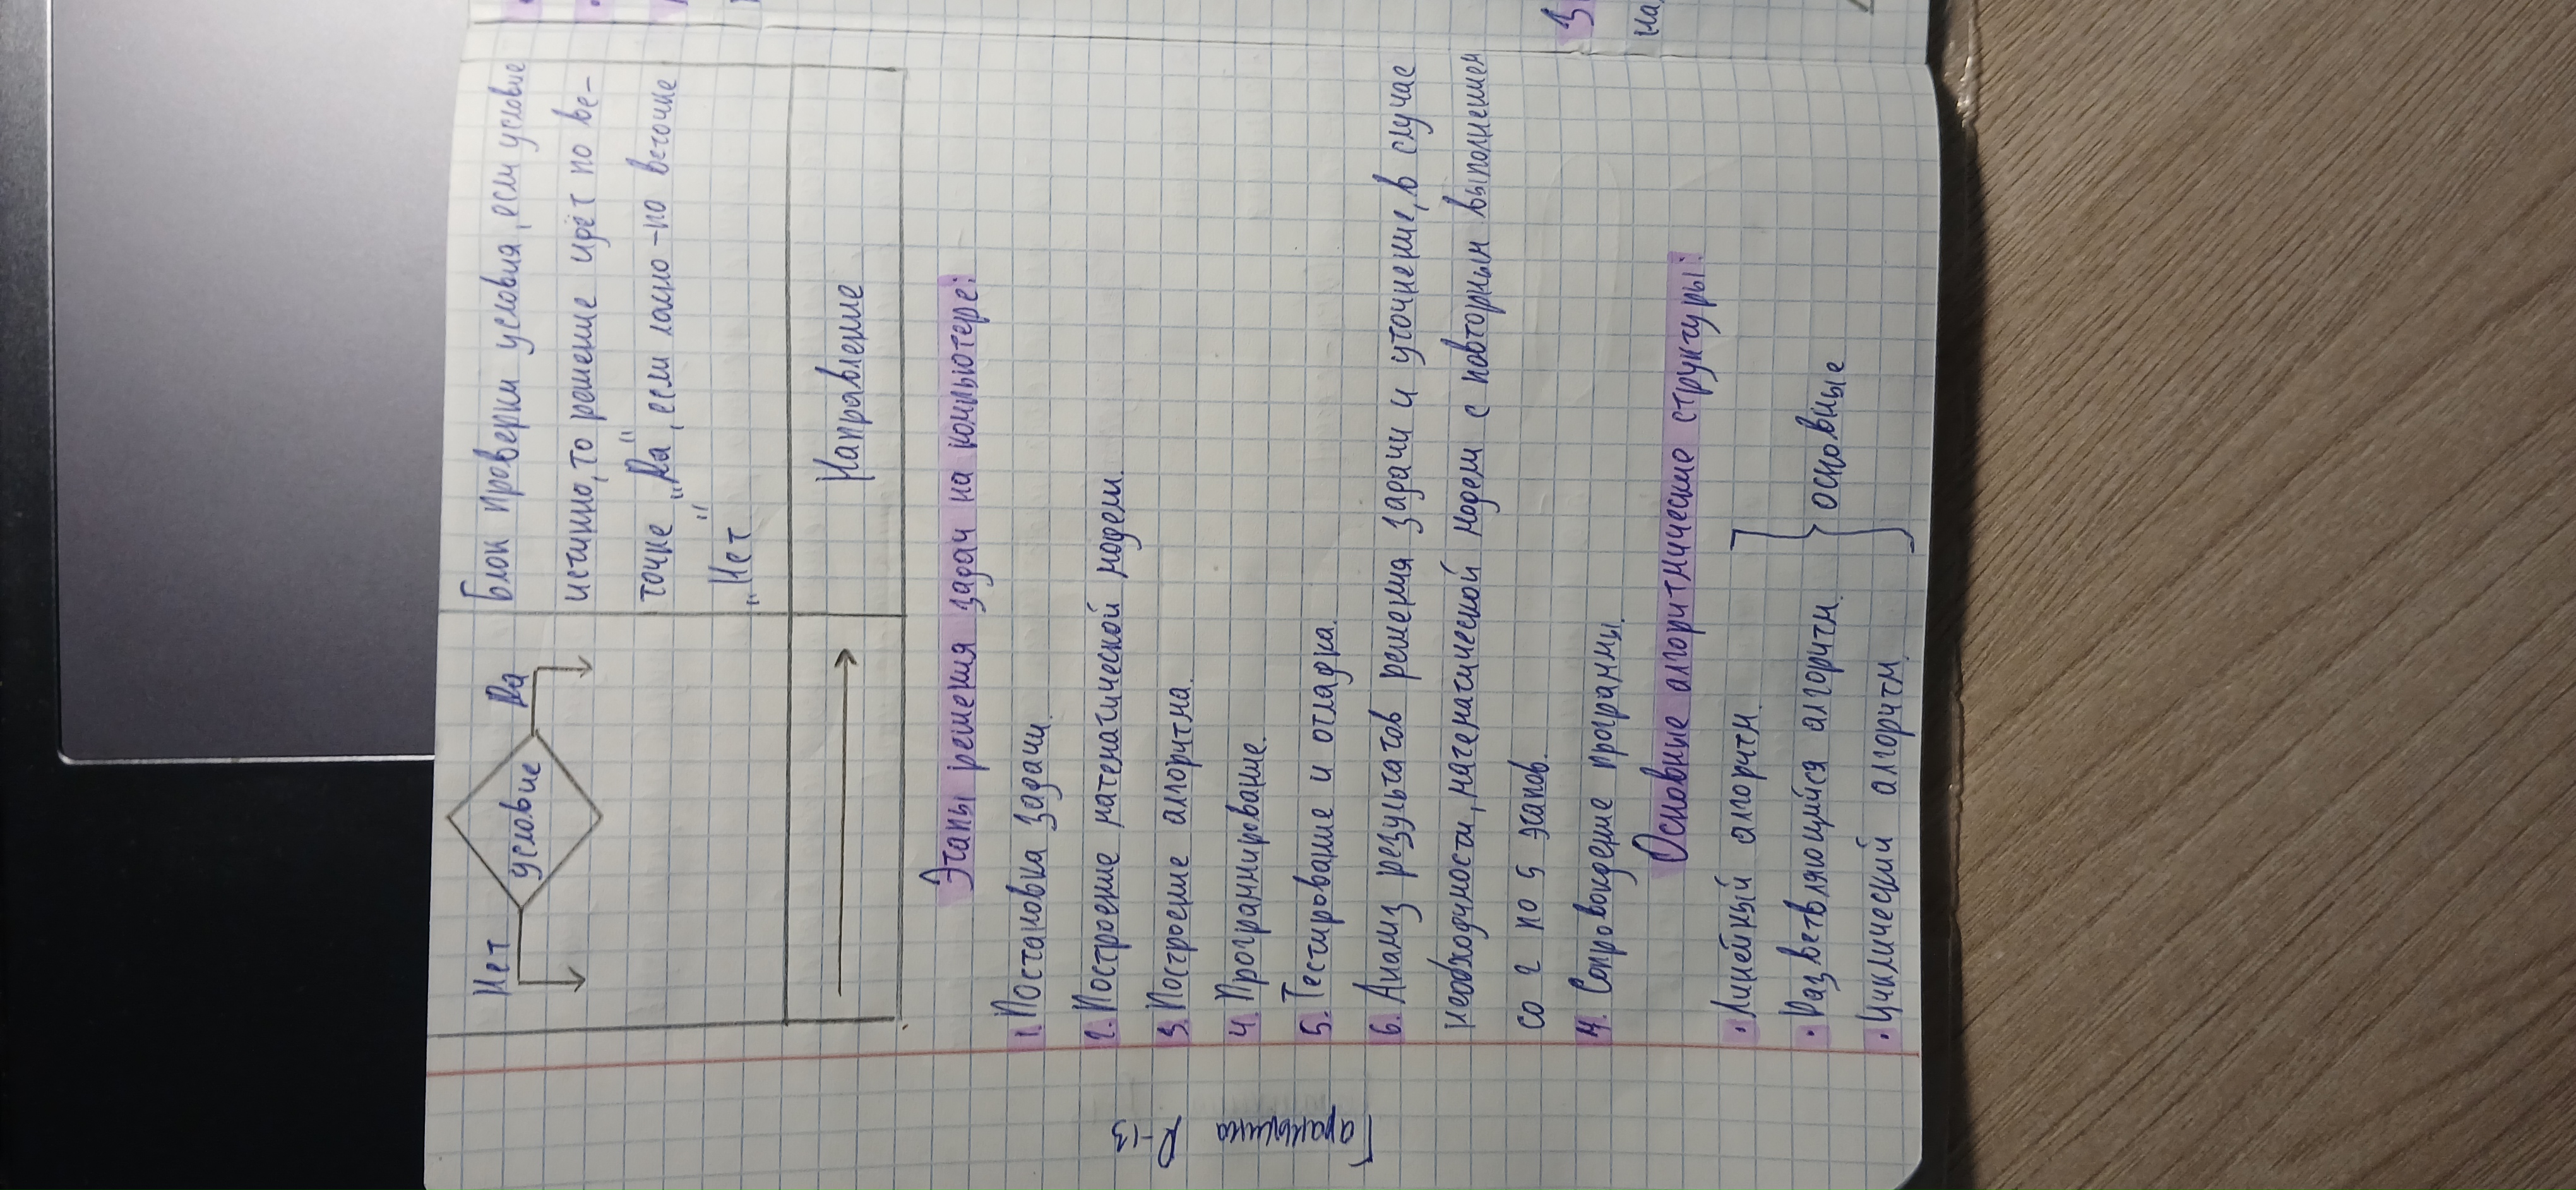 Нет
условие
Да
Блок проверки условия, если условие
истинно, то решение идёт по ве-
точке „Да", если ложно - по веточке
„Нет"
Направление
Этапы решения задач на компьютере:
1. Постановка задачи.
2. Построение математической модели.
3. Построение алгоритма.
4. Программирование.
5. Тестирование и отладка.
6. Анализ результатов решения задачи и уточнение, в случае
необходимости, математической модели с повторным выполнением
со 2 по 5 этапов.
7. Сопровождение программы.
Основные алгоритмические структуры:
• Линейный алгоритм.
• Разветвляющийся алгоритм.
• Циклический алгоритм.
основные